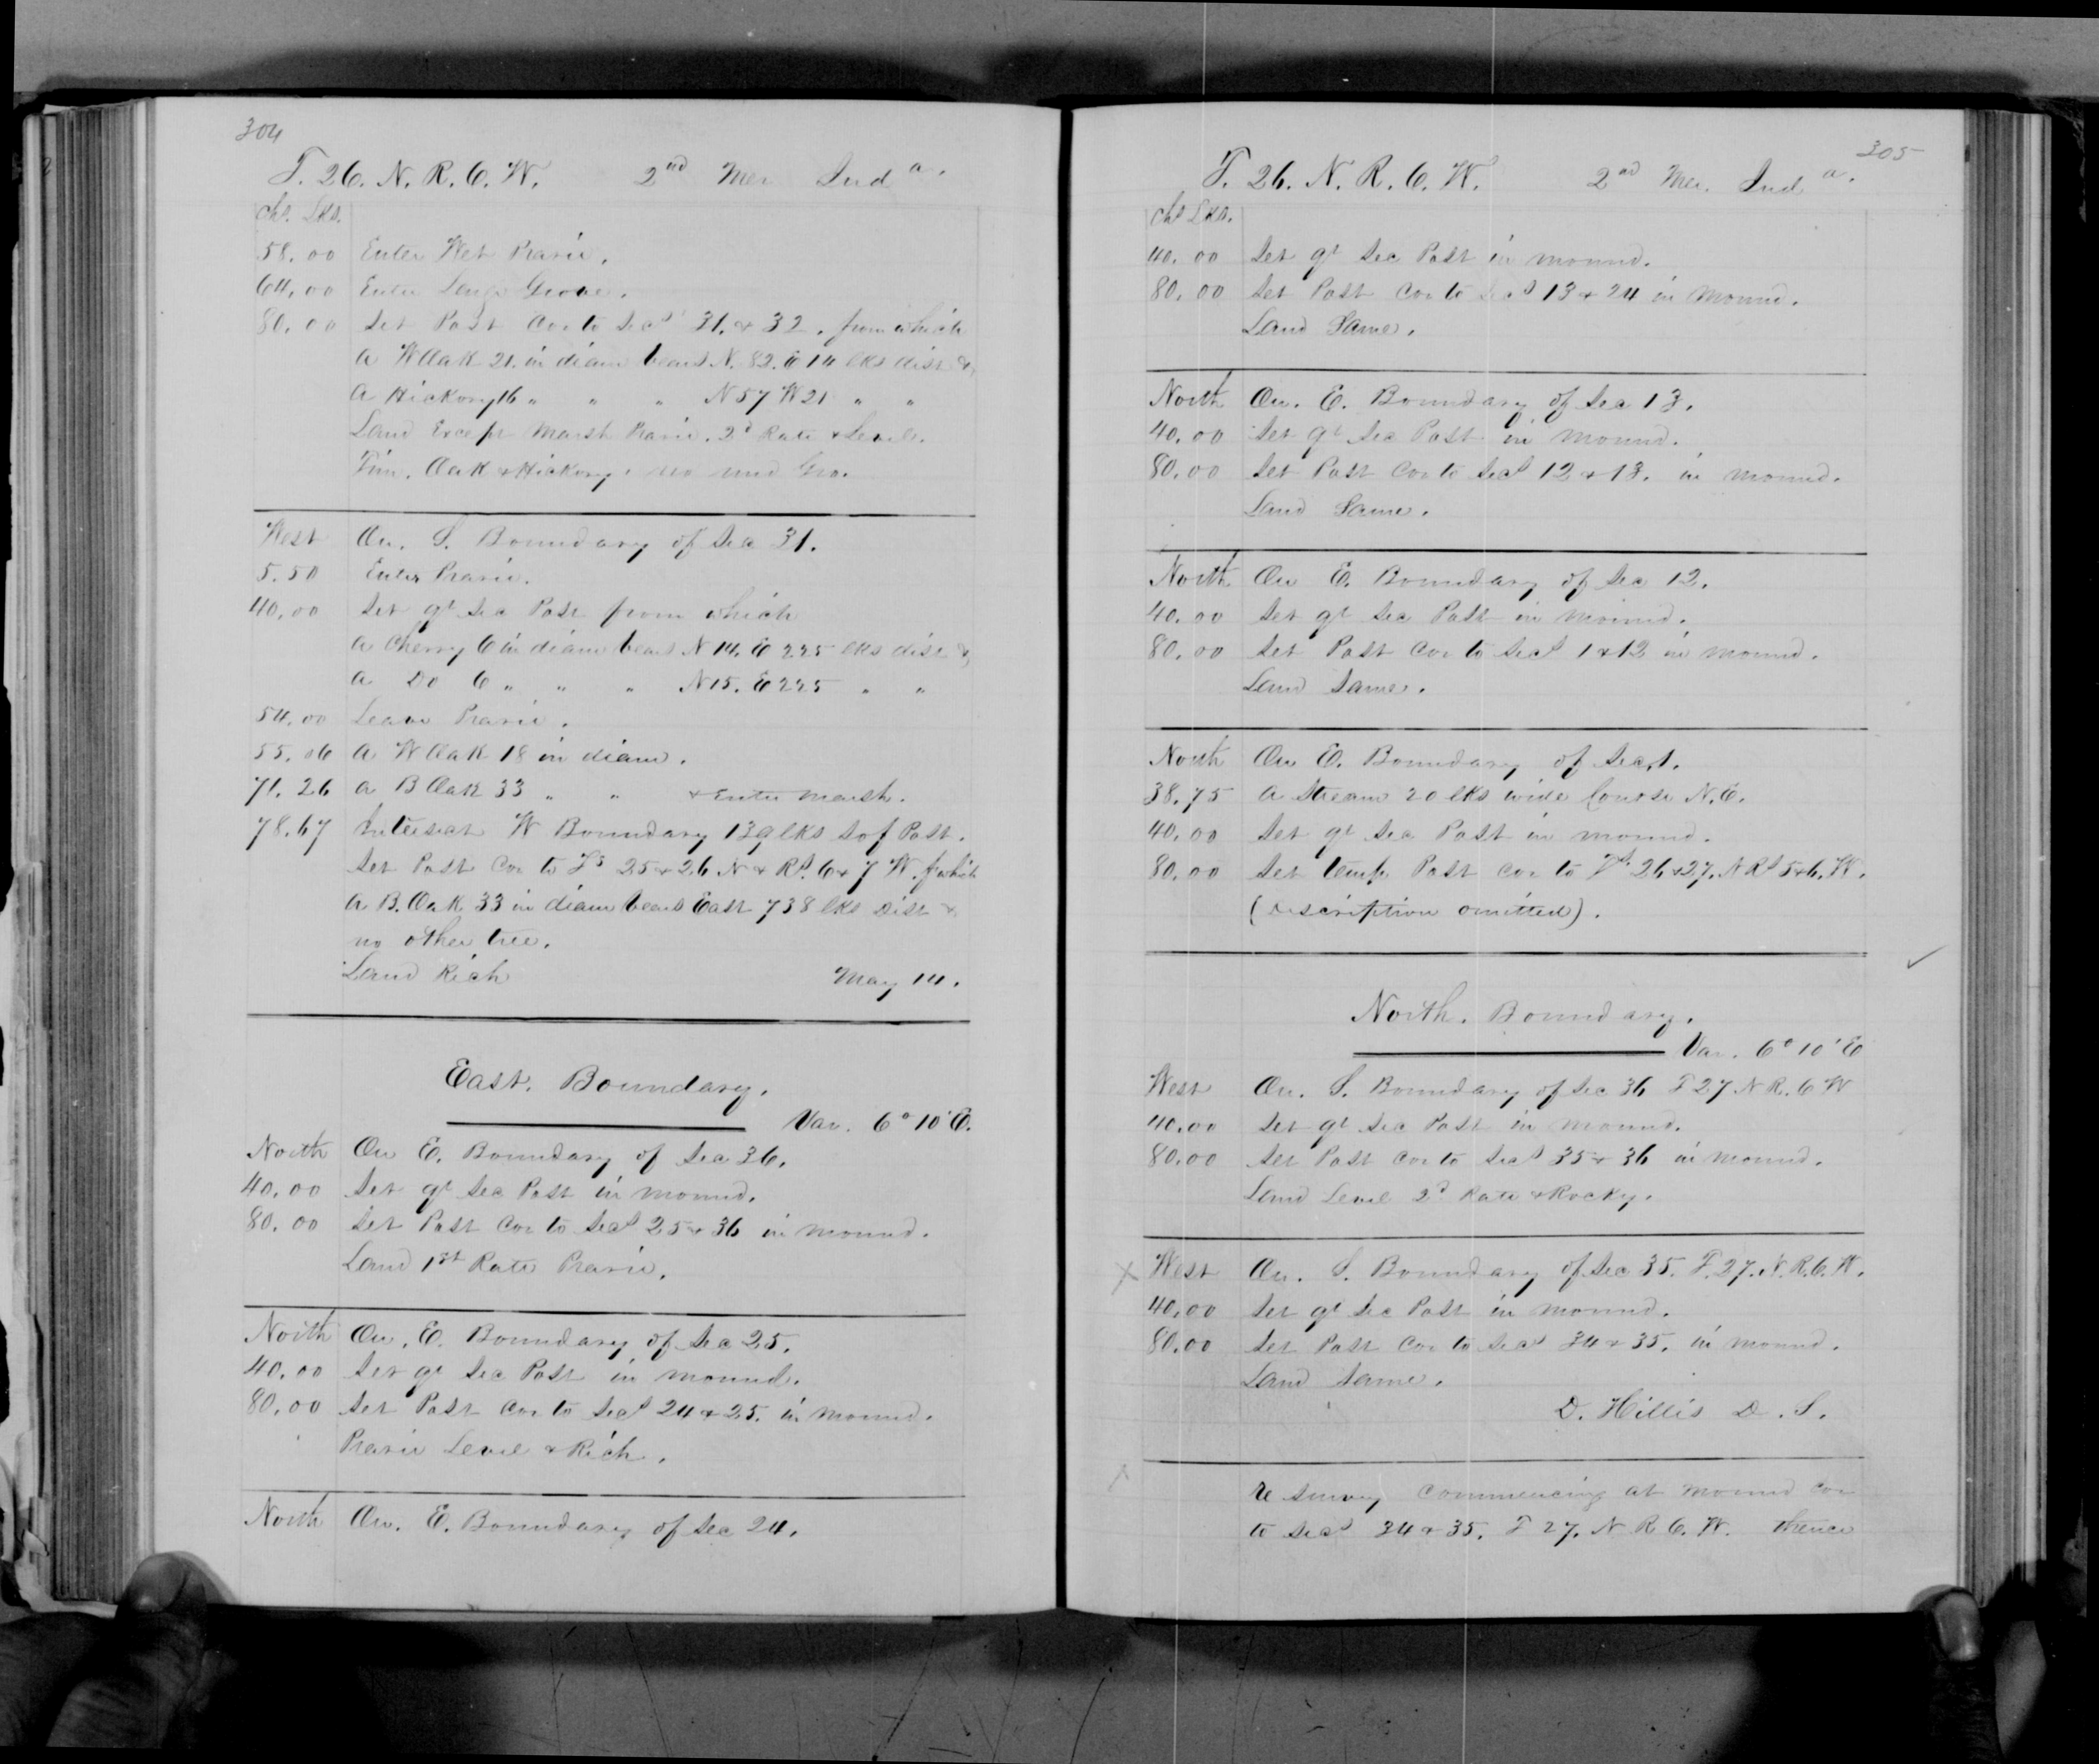 304
T. 26. N. R. 6. W. 2nd Mer Ind a.
Chs. Lks.
58.00 Enter Wet Prarie.
64.00 Enter Large Grove.
80.00 Set Post Cor to Secs 31. & 32. from which
A W Oak 21. in diam bears N. 82. E 14 lks dist &
A Hickory 16 " " " N 57 W 21 " "
Land Except Marsh Prarie. 2d Rate & Level.
Tim. Oak & Hickory. no und Gro.
West On. S. Boundary of Sec 31.
5.50 Enter Prarie.
40.00 Set qr Sec Post from which
A Cherry 6 in diam bears N 14. E 225 lks dist &
A Do 6 " " " N 15. E 225 " "
54.00 Leave Prarie.
55.06 A W Oak 18 in diam.
71.26 A B Oak 33 " " & Enter Marsh.
78.67 Intersect W Boundary 139 lks S of Post.
Set Post Cor to Ts 25 & 26 N & Rs. 6 & 7 W. f which
A B. Oak 33 in diam bears East 738 lks Dist &
no other tree.
Land Rich May 14.
East. Boundary.
Var. 6° 10' E.
North On E. Boundary of Sec 36.
40.00 Set qr Sec Post in mound.
80.00 Set Post Cor to Secs 25 & 36 in mound.
Land 1st Rate Prarie.
North On. E. Boundary of Sec 25.
40.00 Set qr Sec Post in mound.
80.00 Set Post Cor to Secs 24 & 25. in mound.
Prarie Level & Rich.
North On. E. Boundary of Sec 24.
305
T. 26. N. R. 6. W. 2nd Mer. Ind a.
Chs Lks.
40.00 Set qr Sec Post in mound.
80.00 Set Post Cor to Secs 13 & 24 in Mound.
Land Same.
North On. E. Boundary of Sec 13.
40.00 Set qr Sec Post in mound.
80.00 Set Post Cor to Secs 12 & 13. in mound.
Land Same.
North On E. Boundary of Sec 12.
40.00 Set qr Sec Post in mound.
80.00 Set Post Cor to Secs 1 & 12 in mound.
Land Same.
North On E. Boundary of Sec 1.
38.75 A Stream 20 lks wide Course N. E.
40.00 Set qr Sec Post in mound.
80.00 Set temp Post cor to Ts. 26 & 27. N Rs 5 & 6. W.
(description omitted).
North. Boundary.
Var. 6° 10' E
West On. S. Boundary of Sec 36 T 27 N R. 6 W
40.00 Set qr Sec Post in mound.
80.00 Set Post Cor to Secs 35 & 36 in mound.
Land Level 2d Rate & Rocky.
x West On. S. Boundary of Sec 35. T. 27. N. R. 6. W.
40.00 Set qr Sec Post in mound.
80.00 Set Post Cor to Secs 34 & 35. in mound.
Land Same.
D. Hillis D. S.
Re survey Commencing at mound cor
to Secs 34 & 35. T 27. N R 6. W. thence